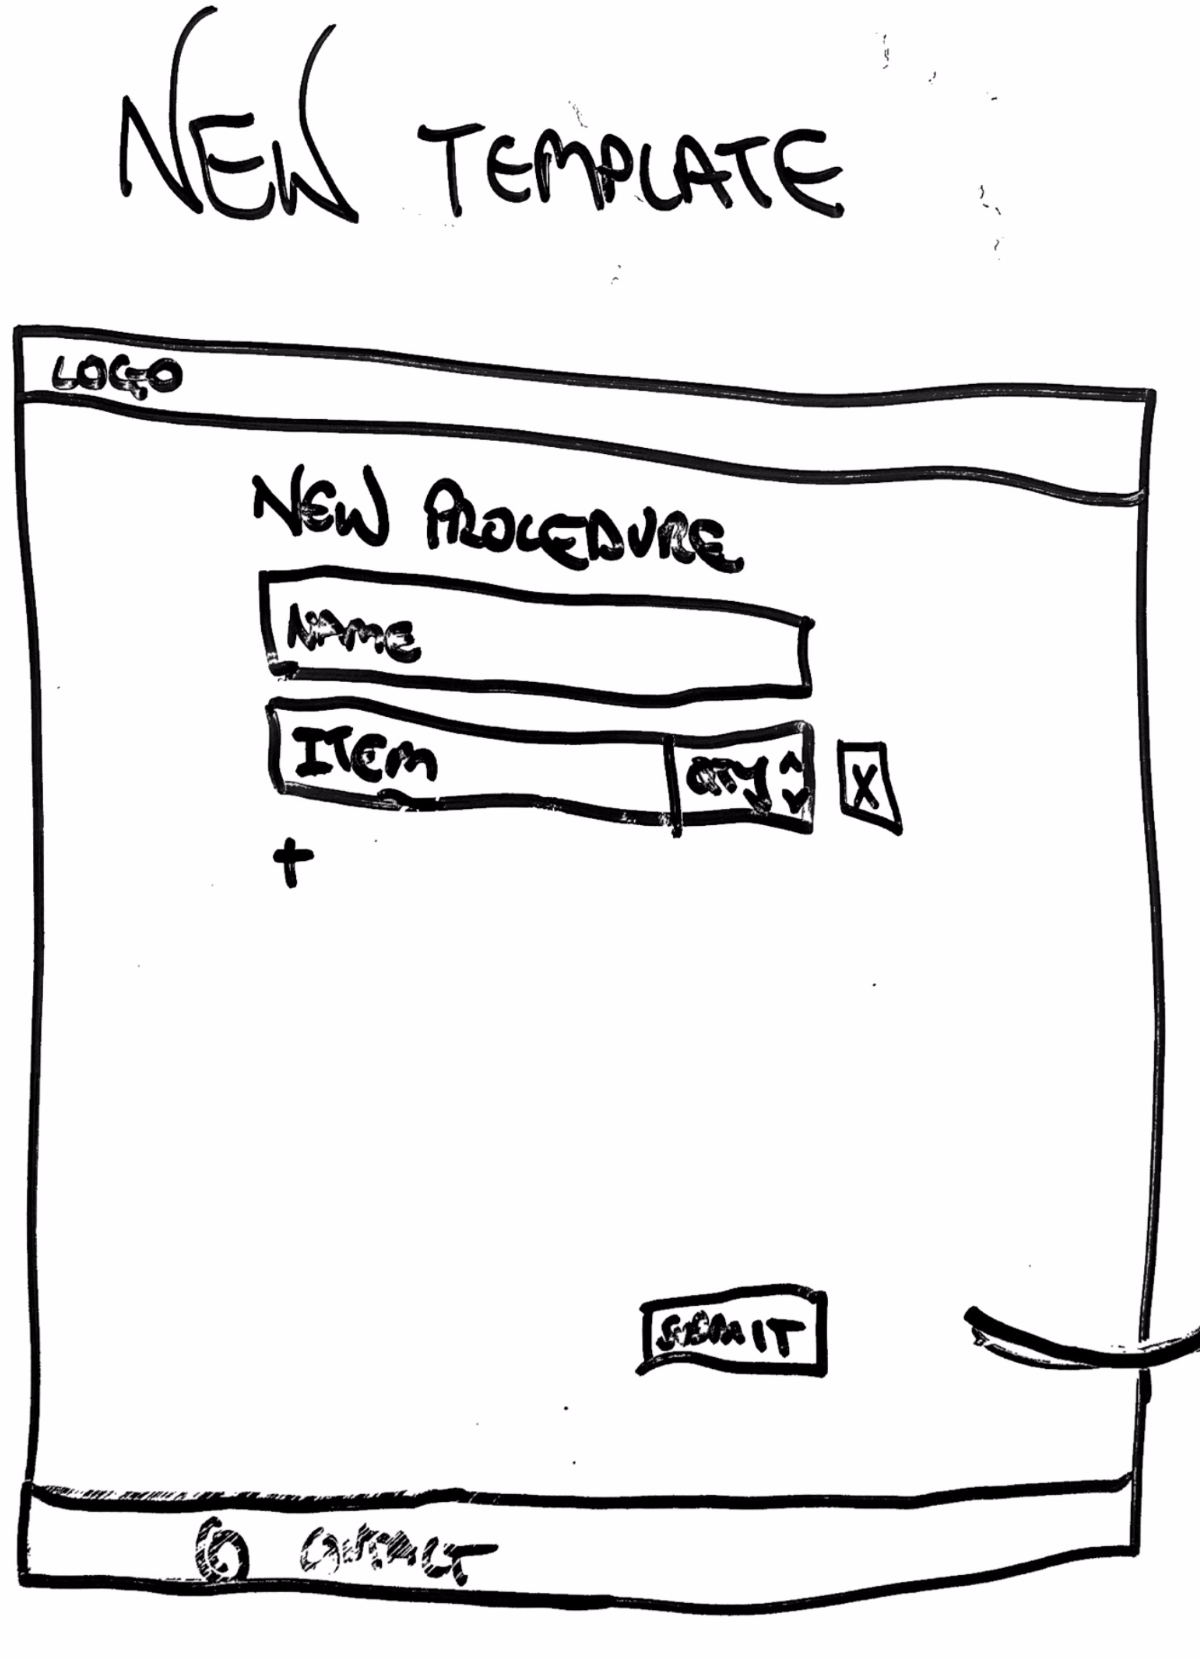 NEW TEMPLATE
LOGO
NEW PROCEDURE
NAME
ITEM QTY X
+
SUBMIT
© CONTACT